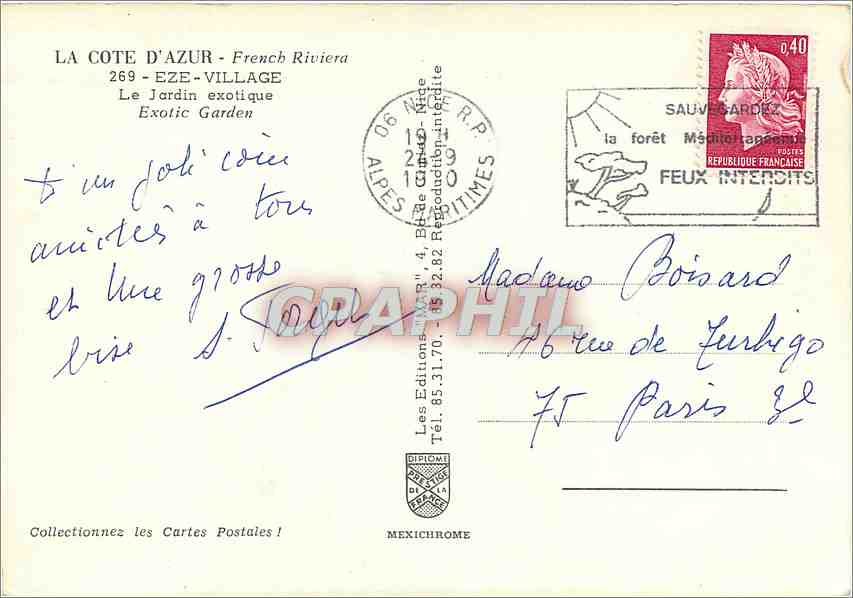 LA COTE D'AZUR - French Riviera
269 - EZE-VILLAGE
Le Jardin exotique
Exotic Garden
un joli coin
amitiés à tous
et une grosse
bise S. Joseph
Collectionnez les Cartes Postales !
Les Editions "MAR", 4, Bd de - Nice
Tél. 85.31.70. - 85.32.82 Reproduction interdite
DIPLOME
PRESTIGE
DE LA
FRANCE
MEXICHROME
06 NICE R.P.
ALPES MARITIMES
SAUVEGARDEZ
la forêt Méditerranéenne
FEUX INTERDITS
0,40
POSTES
REPUBLIQUE FRANÇAISE
Madame Boisard
46 rue de Turbigo
75 Paris 3e
CRAPHIL